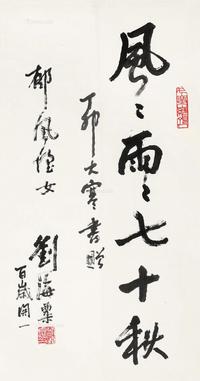 風〻雨〻七十秋
丁卯大寒書贈
郁風侄女
劉海粟
百歲開一